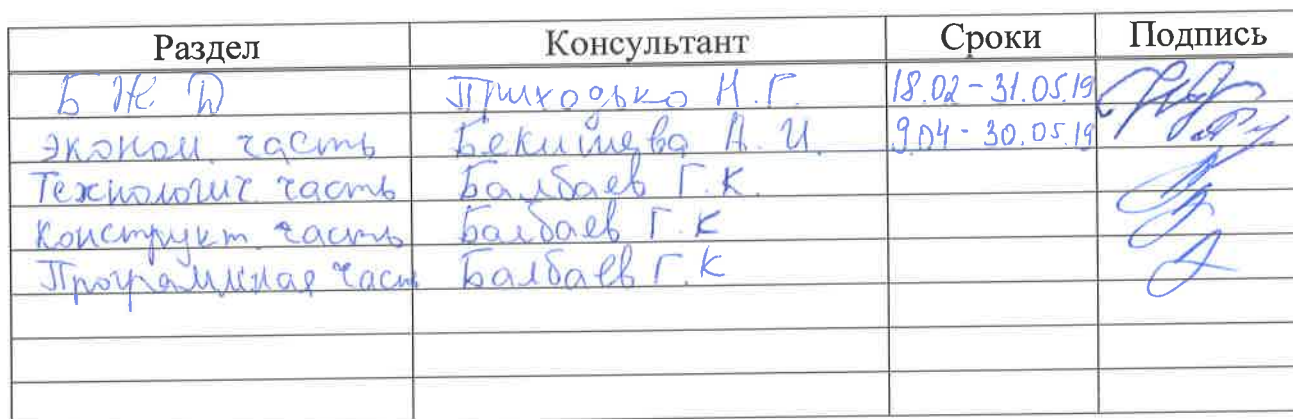 Раздел Консультант Сроки Подпись
БЖД Приходько Н.Г. 18.02 - 31.05.19
эконом. часть Бекишева А. И. 9.04 - 30.05.19
Технологич часть Балбаев Г.К.
Конструкт. часть Балбаев Г.К
Программная часть Балбаев Г.К